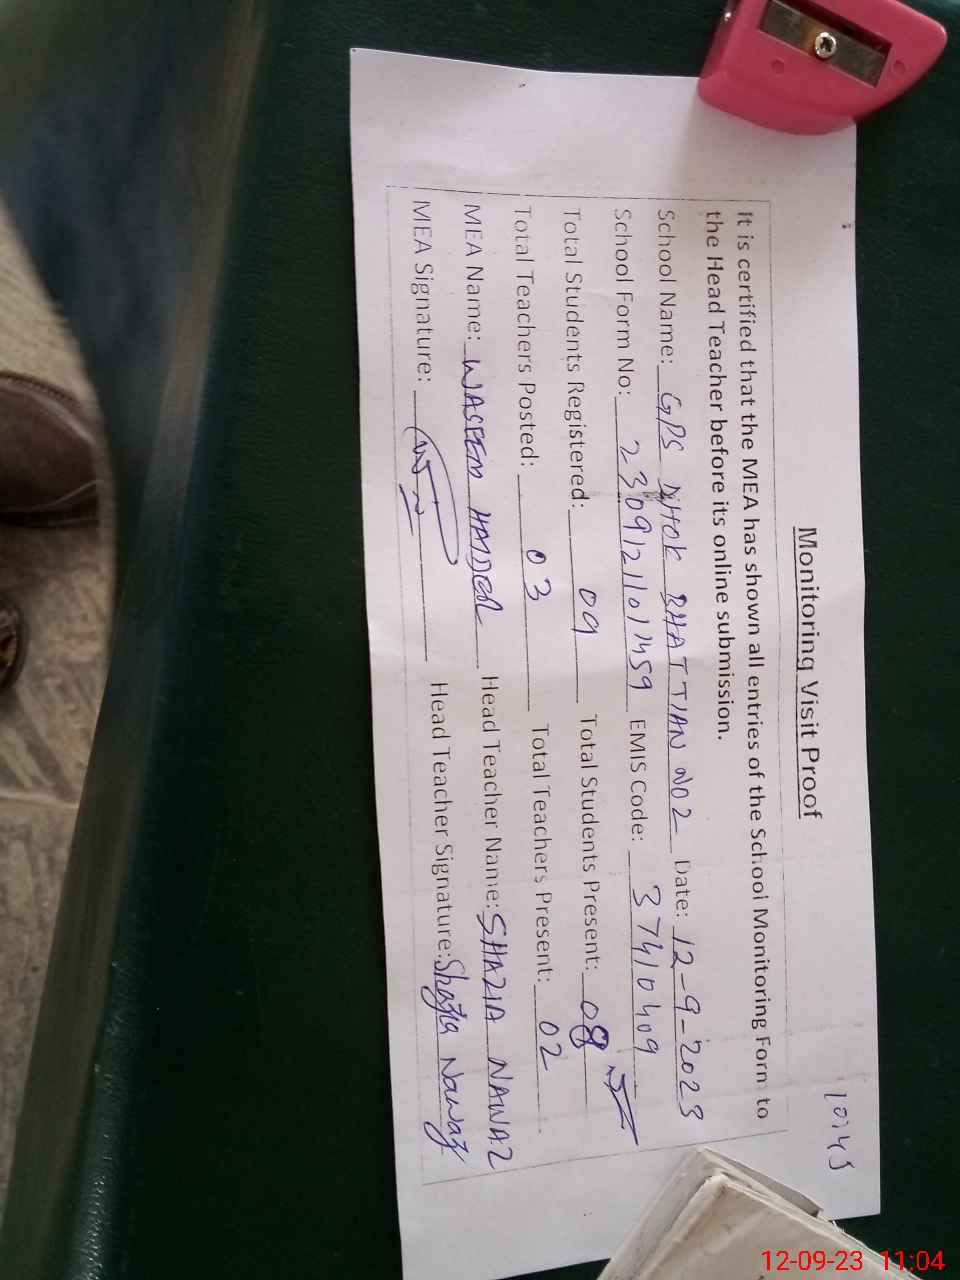 10:45
Monitoring Visit Proof
It is certified that the MEA has shown all entries of the School Monitoring Form to
the Head Teacher before its online submission.
School Name: GPS DHOK BHATTIAN NO2 Date: 12-9-2023
School Form No: 230912101459 EMIS Code: 37410409
Total Students Registered: 09 Total Students Present: 08
Total Teachers Posted: 03 Total Teachers Present: 02
MEA Name: WASEEM HAIDER Head Teacher Name: SHAZIA NAWAZ
MEA Signature: Head Teacher Signature: Shazia Nawaz
12-09-23 11:04